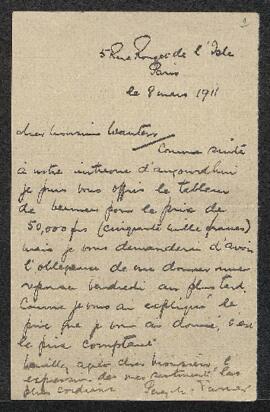 5 Rue Rouget de l'Isle
Paris
le 8 mars 1911
cher Monsieur Wauters
Comme suite
à notre entrevue d'aujourd'hui
je puis vous offrir le tableau
de Vermeer pour le prix de
50,000 frs (cinquante mille francs)
mais je vous demanderai d'avoir
l'obligeance de me donner une
reponse vendredi au plus tard.
Comme je vous ai expliqué le
prix que je vous ai donné, c'est
le prix comptant.
Veuillez agréer cher Monsieur l'
expression de mes sentiments les
plus cordiaux